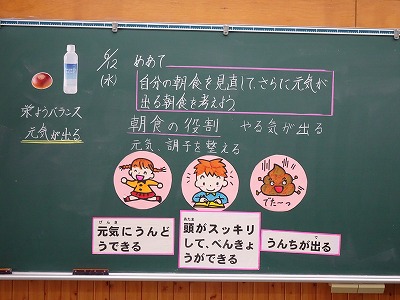 6/12
(水)
めあて
自分の朝食を見直して、さらに元気が
出る朝食を考えよう。
栄ようバランス
元気が出る
朝食の役割 やる気が出る
元気、調子を整える
でた〜っ
げんき
元気にうんど
うできる
あたま
頭がスッキリ
して、べんきょ
うができる
で
うんちが出る